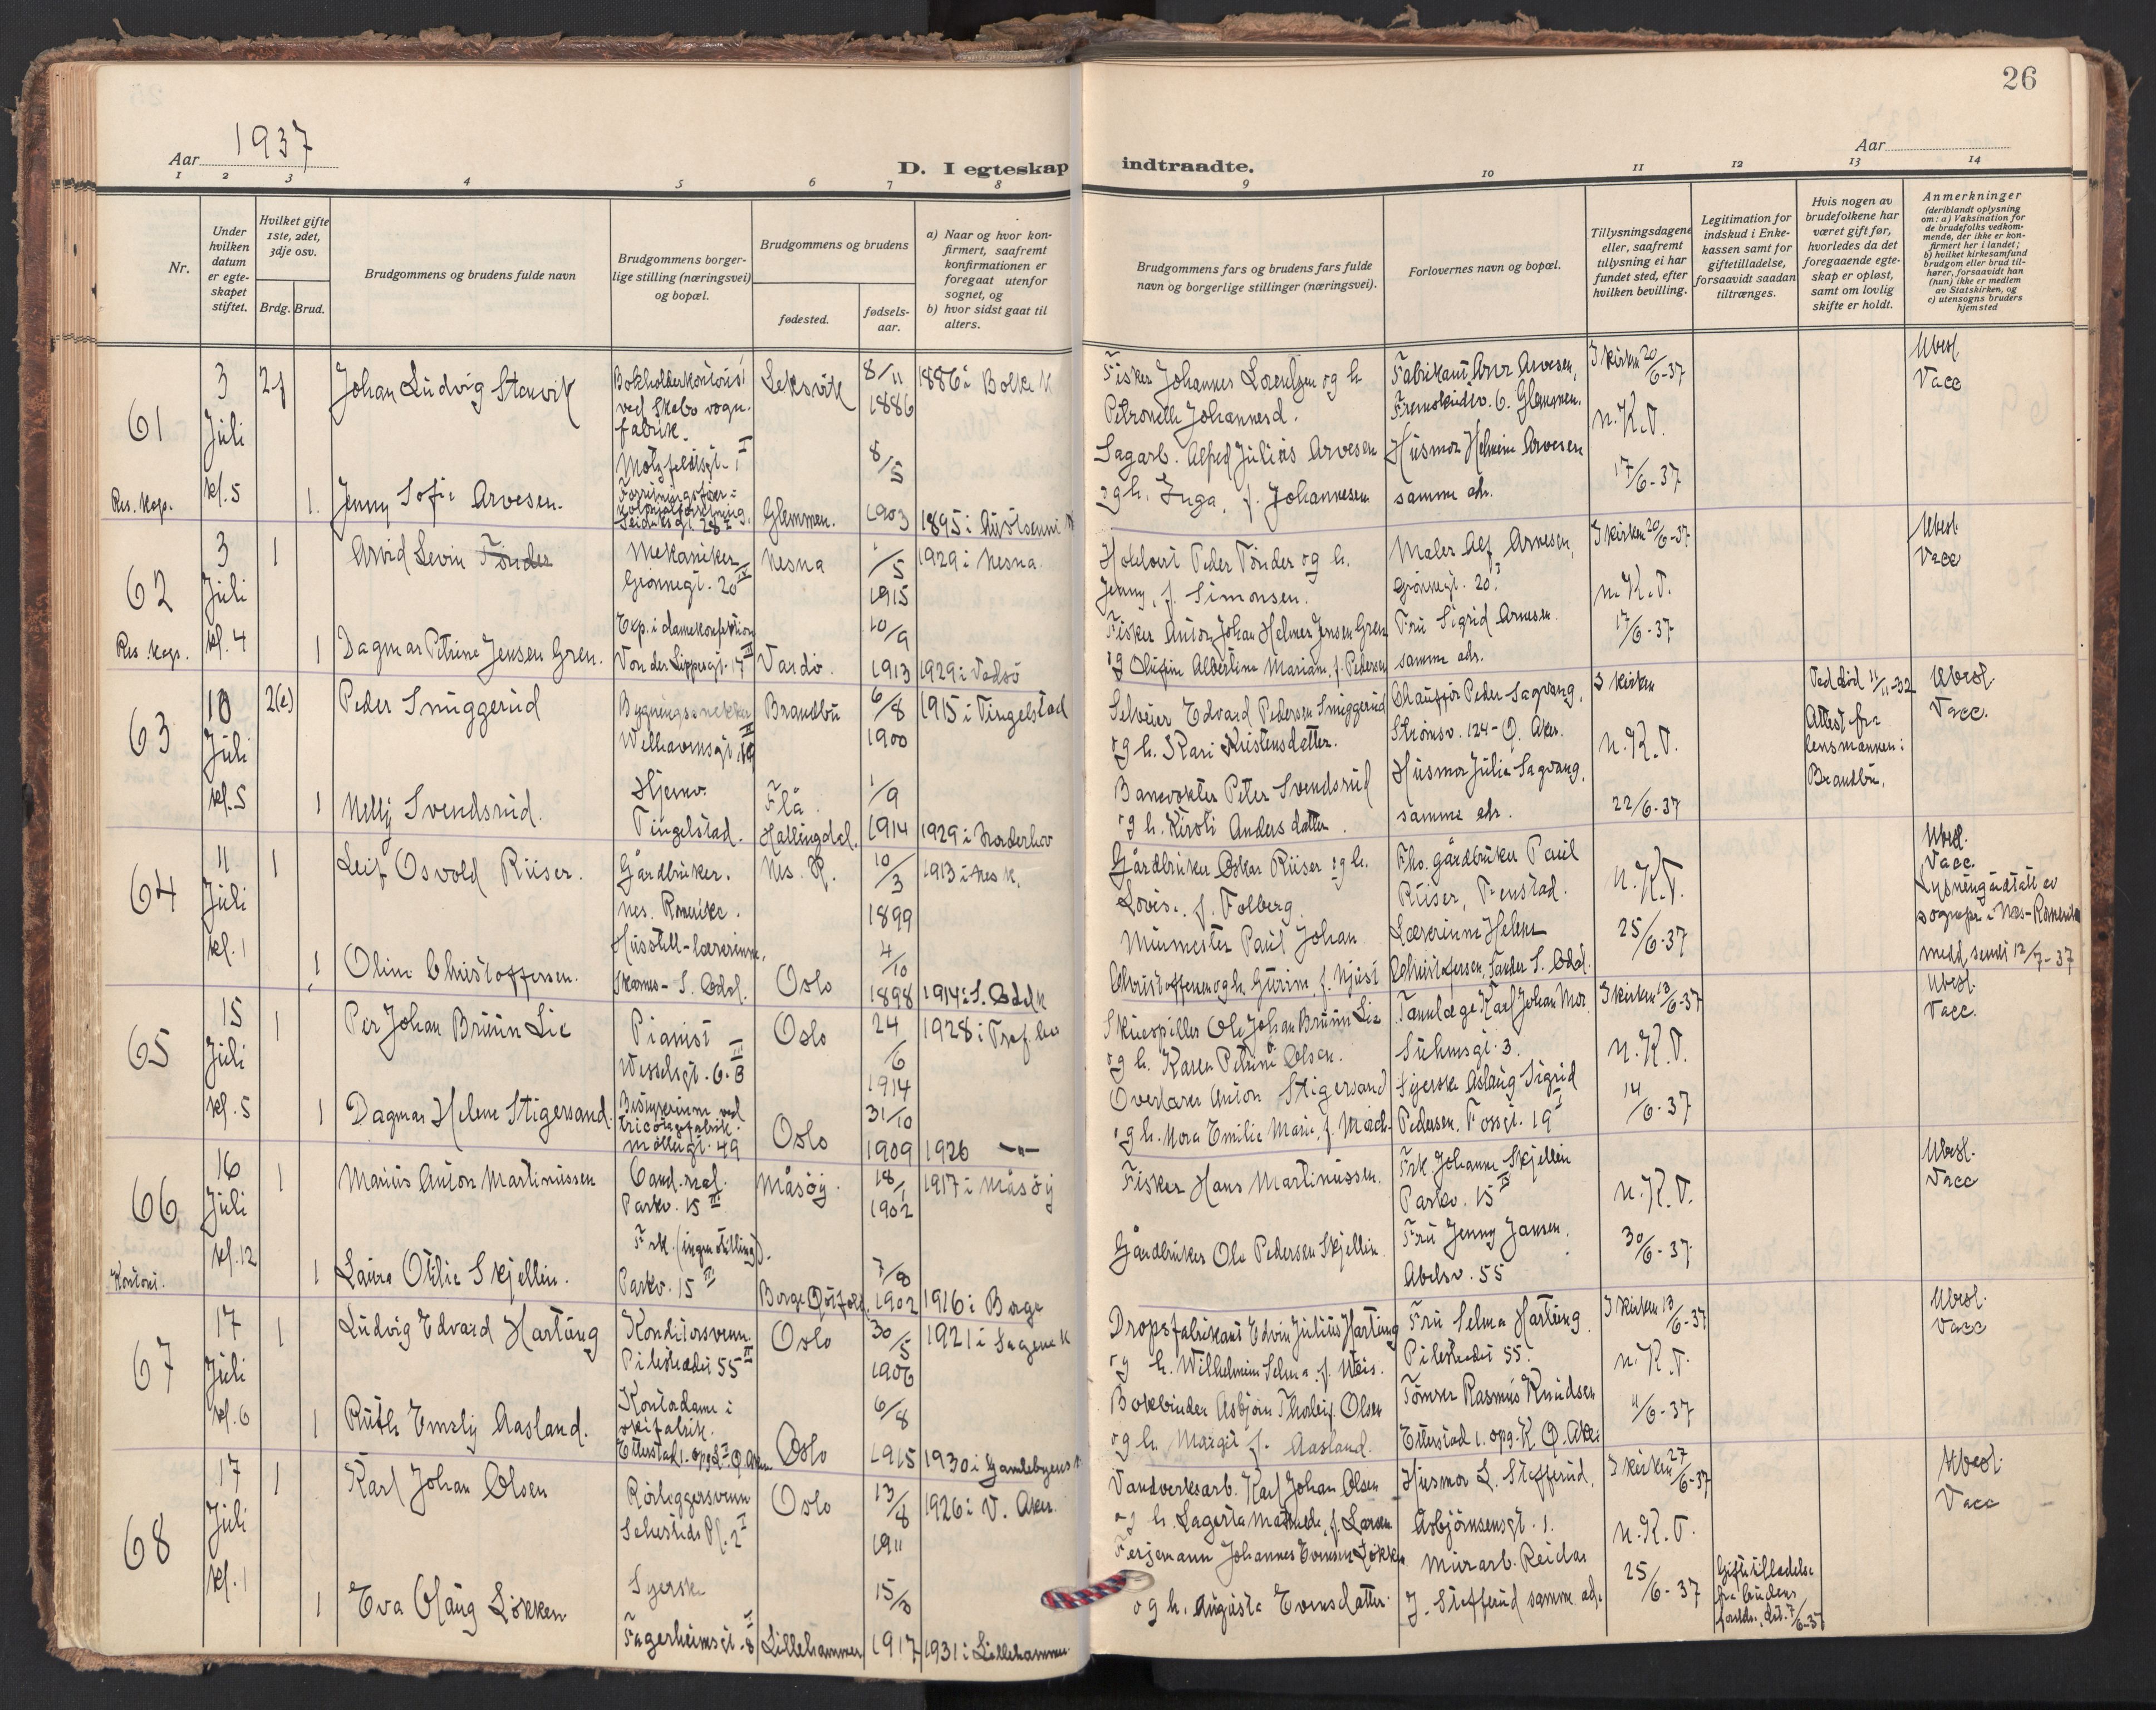 26
Aar 1937
D. I egteskap indtraadte.
Aar
1 2 3 4 5 6 7 8 9 10 11 12 13 14
Nr.
Under hvilken datum er egteskapet stiftet.
Hvilket gifte 1ste, 2det, 3dje osv.
Brdg. Brud.
Brudgommens og brudens fulde navn
Brudgommens borgerlige stilling (næringsvei) og bopæl.
Brudgommens og brudens
fødested.
fødselsaar.
a) Naar og hvor konfirmert, saafremt konfirmationen er foregaat utenfor sognet, og
b) hvor sidst gaat til alters.
Brudgommens fars og brudens fars fulde navn og borgerlige stillinger (næringsvei).
Forlovernes navn og bopæl.
Tillysningsdagene eller, saafremt tillysning ei har fundet sted, efter hvilken bevilling.
Legitimation for indskud i Enkekassen samt for giftetilladelse, forsaavidt saadan tiltrænges.
Hvis nogen av brudefolkene har været gift før, hvorledes da det foregaaende egteskap er opløst, samt om lovlig skifte er holdt.
Anmerkninger
(deriblandt oplysning om: a) Vaksination for de brudefolks vedkommende, der ikke er konfirmert her i landet; b) hvilket kirkesamfund brudgom eller brud tilhører, forsaavidt han (hun) ikke er medlem av Statskirken, og c) utensogns bruders hjemsted
61
Res. kap.
3 Juli kl. 5
Johan Ludvig Stenvik
ved Skabo vognfabrik.
Leksvik
8/11 1886
Fisker Johannes Lorentzen og h.
Petronelle Johannesd.
Fabrikant Arvesen,
I kirken 20/6-37
n. K. T.
17/6-37
Ubesl.
Vacc
1
Jenny Sofie Arvesen.
Glemmen.
8/5 1903
Sagarb. Alfred Julius Arvesen
og h. Inga, f. Johannesen
Husmor Helmine Arvesen
samme adr.
62
Res. kap.
3 Juli kl. 4
1
Arvid Levin Tönder
Mekaniker
Grönnegt. 20 IV
Nesna
1/5 1915
1929 i Nesna
Peder Tönder og h.
Jenny, f. Simonsen.
Maler Alf Arnesen,
Grönnegt. 20.
I kirken 20/6-37
n. K. T.
17/6-37
Ubesl.
Vacc
1
Dagmar Petrine Jensen Gren.
Exp. i damekonfektion
Von der Lippesgt. 17 III
Vardö.
10/9 1913
1929 i Vadsö
Fisker Anton Johan Helmer Jensen Gren
og Olufine Albertine Mariane, f. Pedersen
Fru Sigrid Arnesen.
samme adr.
63
10 Juli kl. 5
2(e)
Peder Smuggerud
Bygningssnekker
Welhavensgt. 19 III
Brandbu
6/8 1900
1915 i Tingelstad
Selveier Edvard Pedersen Smuggerud
og h. Kari Kristensdatter.
Chauffør Peder Sagvang,
Strömsv. 124 - Ö. Aker.
I kirken
n. K. T.
22/6-37
Ved död 11/11-32
Attest fra
lensmannen i
Brandbu.
Ubesl.
Vacc.
1
Nelly Svendsrud.
Hjemv.
Tingelstad.
Flå
Hallingdal.
1/9 1914
1929 i Norderhov
Banevokter Peter Svendsrud
og h. Kirsti Andersdatter.
Husmor Julia Sagvang,
samme adr.
64
11 Juli kl. 1
1
Leif Osvold Riiser.
Gårdbruker.
Nes. Romerike.
Nes. R.
10/3 1899
1913 i Nes k.
Gårdbruker Oskar Riiser og h.
Lovise, f. Folberg.
Fho. gårdbruker Paul
Riiser, Fenstad.
n. K. T.
25/6-37
Ubesl.
Vacc.
Lysningsattest av
sognepr. i Nes-Romerike
medd. sendt 12/7-37
1
Oline Christoffersen.
Husstell-lærerinne,
Skarnes - S. Odal.
Oslo
4/10 1898
1914 i S. Odal k
Murmester Paul Johan
Christoffersen og h. Gurine, f. Njust
Lærerinne Helene
Christoffersen, Sander S. Odal.
65
15 Juli kl. 5
1
Per Johan Bruun Lie
Pianist
Wesselsgt. 6. B
Oslo
24/6 1914
1928 i Tref.
Skuespiller Ole Johan Bruun Lie
og h. Karen Petrine Olsen.
Tannlæge Karl Johan Moe
Suhmsgt. 3.
I kirken 13/6-37
n. K. T.
14/6-37
Ubesl.
Vacc.
1
Dagmar Helene Stigersand.
Bestyrerinne ved
tricotagefabrik.
Möllergt. 49
Oslo
31/10 1909
1926 —"—
Overlærer Anton Stigersand
og h. Nora Emilie Marie, f.
Syerske Aslaug Sigrid
Pedersen, Fossgt. 19
66
Kontoret.
16 Juli kl. 12
1
Marius Anton Martinussen
Cand. real.
Parkv. 15 III
Måsöy.
18/1 1902
1917 i Måsöy
Fisker Hans Martinussen.
Frk. Johanne Skjellin
Parkv. 15
n. K. T.
30/6-37
Ubesl.
Vacc
1
Laura Otilie Skjellin.
Frk. (ingen stilling).
Parkv. 15 III
Borge Östfold.
7/8 1902
1916 i Borge
Gårdbruker Ole Pedersen Skjellin.
Fru Jenny Jansen,
Abelsv. 55
67
17 Juli kl. 6
1
Ludvig Edvard Hartung
Konditorsvenn.
Pilestredet 55 II
Oslo
30/5 1906
1921 i Sagene k
Dropsfabrikant Edvin Julius Hartung
og h. Wilhelmine Selma f. Weis.
Fru Selma Hartung
Pilestredet 55.
I kirken 13/6-37
n. K. T.
4/6-37
Ubesl.
Vacc
1
Ruth Emely Aasland.
Kontordame i
skifabrik.
Oslo
6/8 1915
1930 i Gamlebyens k
Bokbinder Asbjörn Thorleif Olsen
og h. Margit f. Aasland.
Tömrer Rasmus Knudsen
Etterstad 1. opg. K Ö. Aker
68
17 Juli kl. 1
1
Karl Johan Olsen
Rörleggersvenn
Schestids Pl. 2 I
Oslo
13/8 1911
1926 i V. Aker.
Vandverksarb. Karl Johan Olsen
og h. Lagerta Mathilde, f. Larsen
Husmor L. Stafferud,
Asbjörnsensgt. 1.
I kirken 27/6-37
n. K. T.
25/6-37
Giftetilladelse
fra brudens
foreldre, dat. 7/6-37
Ubesl.
Vacc
1
Eva Olaug Lökken
Syerske
Fagerheimsgt. 8 I
Lillehammer
15/10 1917
1931 i Lillehammer.
Ferjemann Johannes Evensen Lökken
og h. Augusta Evensdatter.
Murarb. Reidar
J. Stafferud samme adr.